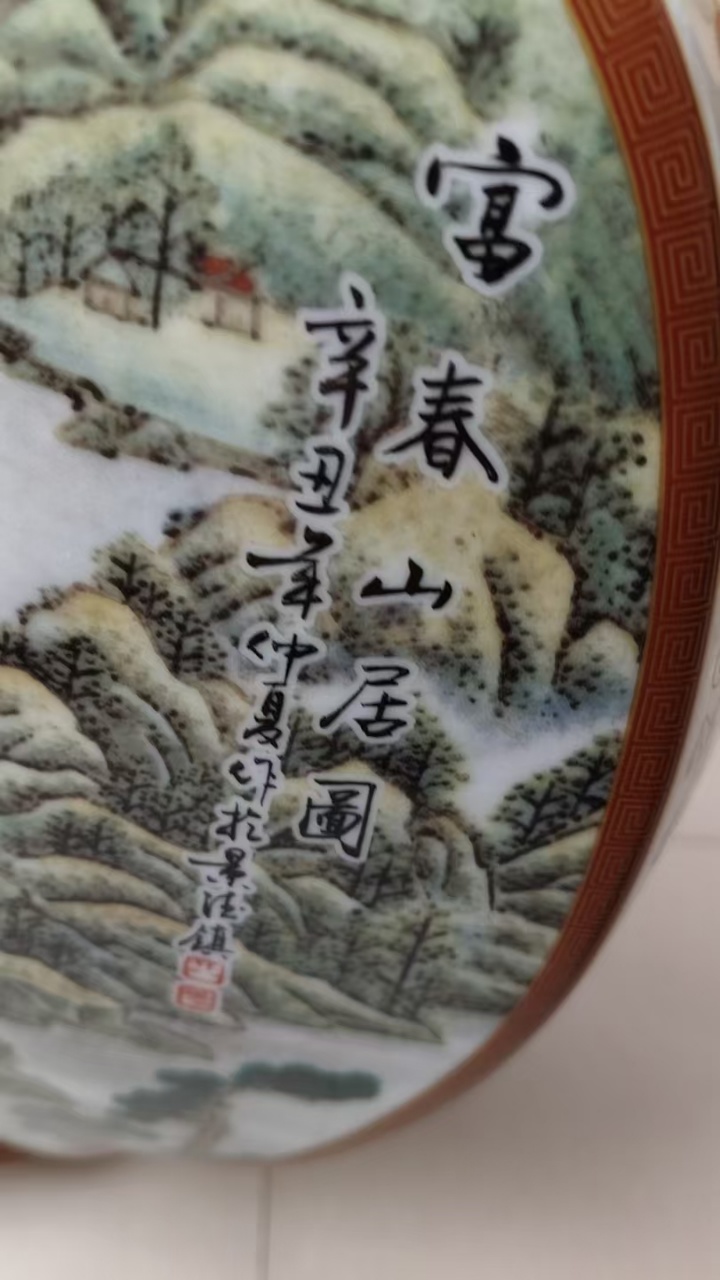 富春山居圖
辛丑年仲夏作於景德鎮